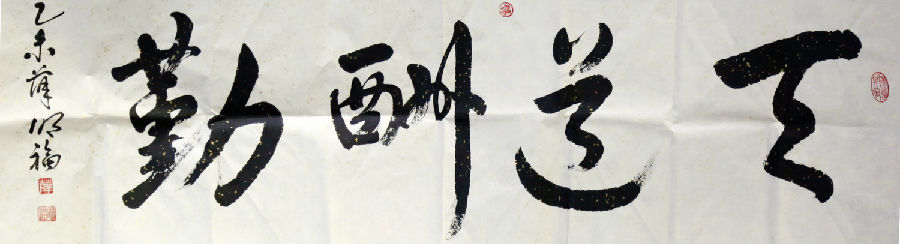 天道酬勤
乙未薛明福